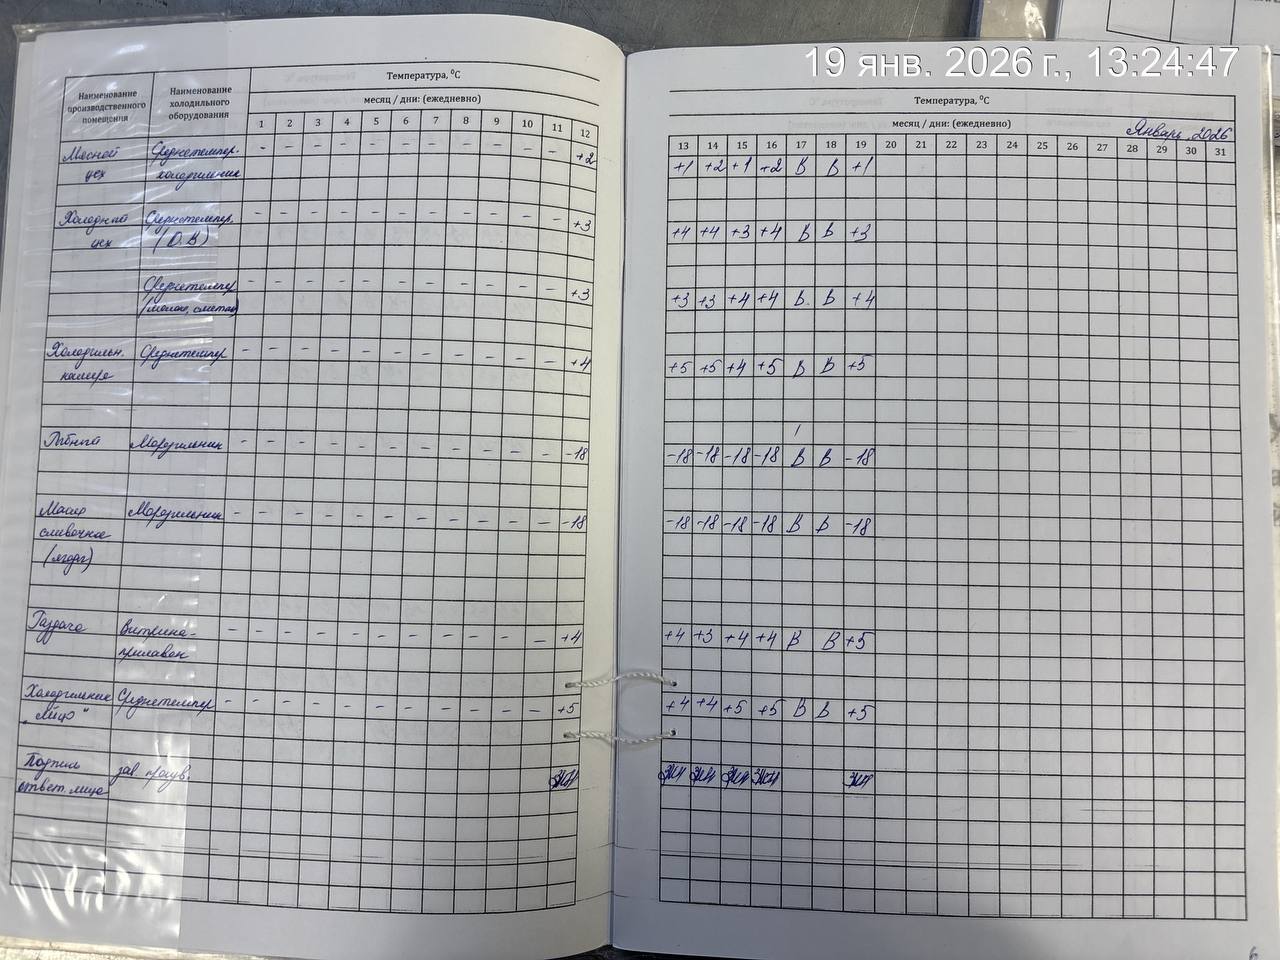 19 янв. 2026 г., 13:24:47
Наименование производственного помещения
Наименование холодильного оборудования
Температура, ⁰С
месяц / дни: (ежедневно)
1 2 3 4 5 6 7 8 9 10 11 12
Мясной Среднетемпер. - - - - - - - - - - - +2
цех холодильник
Холодный Среднетемпер. - - - - - - - - - - - +3
цех
Среднетемпер - - - - - - - - - - - +3
(молоко, сметана)
Холодильн. Среднетемпер - - - - - - - - - - - +4
камера
Рыбный Морозильник - - - - - - - - - - - -18
Масло Морозильник - - - - - - - - - - - -18
сливочное
(ягоды)
Раздача Витрина- - - - - - - - - - - - +4
прилавок
Холодильник Среднетемпер - - - - - - - - - - - +5
"Яйцо"
Подпись зав. произв.
ответ. лица
Температура, ⁰С
месяц / дни: (ежедневно) Январь 2026
13 14 15 16 17 18 19 20 21 22 23 24 25 26 27 28 29 30 31
+1 +2 +1 +2 В В +1
+4 +4 +3 +4 В В +3
+3 +3 +4 +4 В. В +4
+5 +5 +4 +5 В В +5
-18 -18 -18 -18 В В -18
-18 -18 -18 -18 В В -18
+4 +3 +4 +4 В В +5
+4 +4 +5 +5 В В +5
6